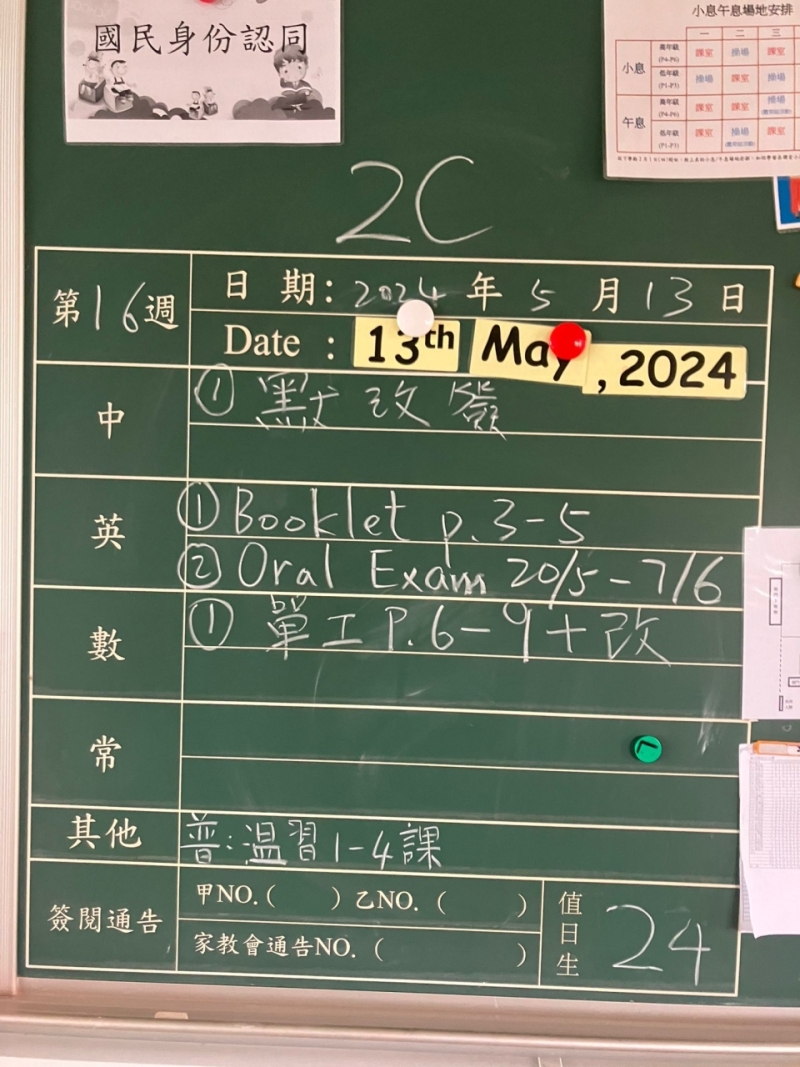 國民身份認同
小息午息場地安排
一 二 三
小息 高年級 (P4-P6) 課室 操場 課室
低年級 (P1-P3) 操場 課室 操場
午息 高年級 (P4-P6) 課室 課室 操場
低年級 (P1-P3) 課室 操場 課室
2C
第16週 日期：2024年5月13日
Date : 13th May, 2024
中 ① 默改簽
英 ① Booklet p.3-5
② Oral Exam 20/5-7/6
數 ① 單工P.6-9+改
常
其他 普：温習1-4課
簽閱通告 甲NO.( ) 乙NO.( )
家教會通告NO.( )
值日生 24